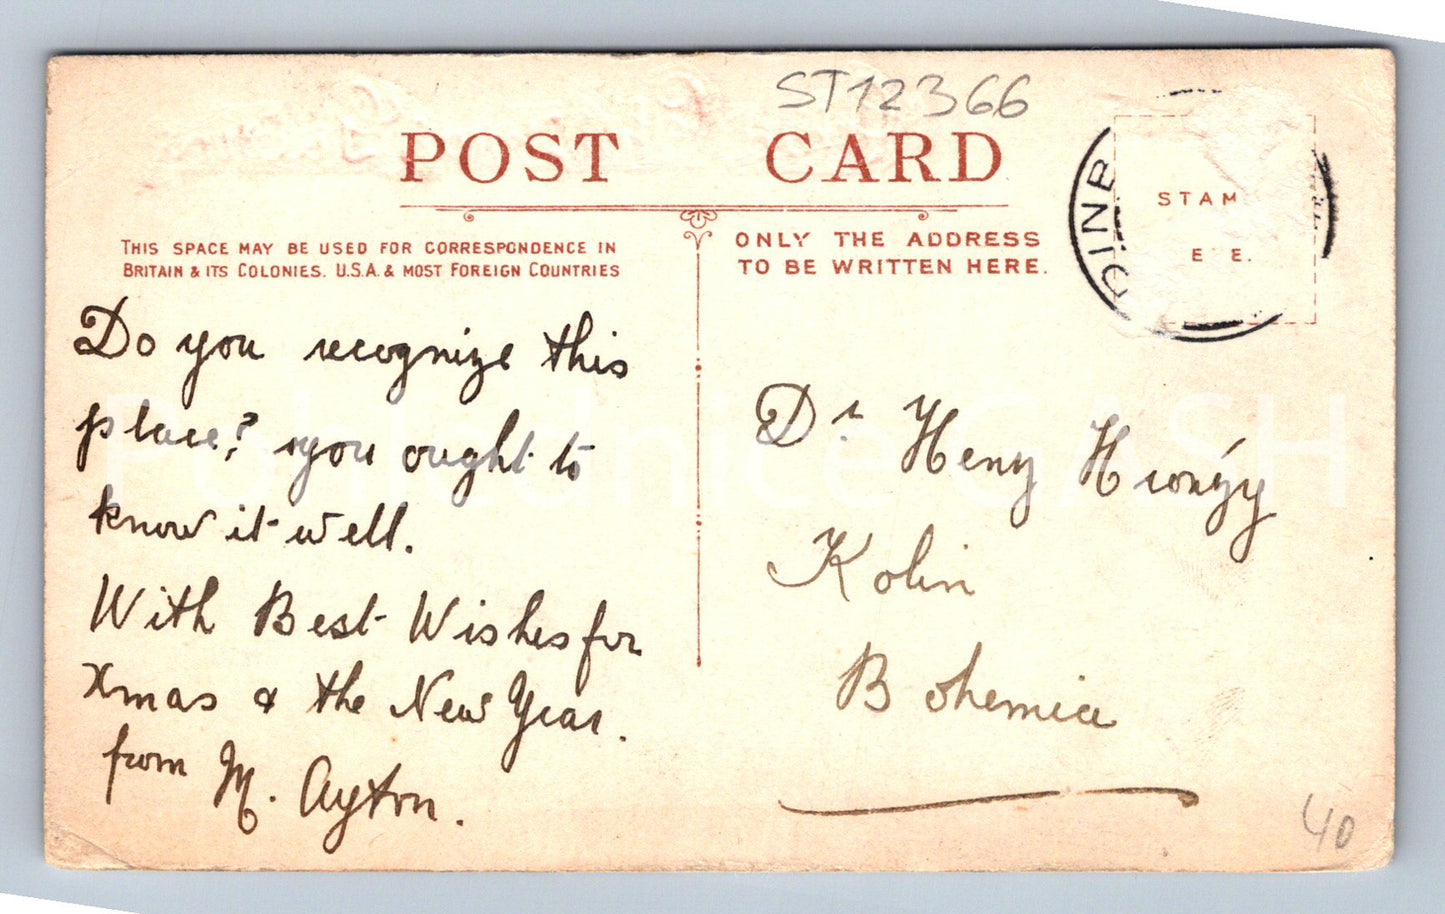 ST12366
POST CARD
THIS SPACE MAY BE USED FOR CORRESPONDENCE IN
BRITAIN & ITS COLONIES. U.S.A. & MOST FOREIGN COUNTRIES
ONLY THE ADDRESS
TO BE WRITTEN HERE.
STAM
E E.
DINB
Do you recognize this
place? you ought to
know it well.
With Best Wishes for
Xmas & the New Year.
from M. Ayton.
Dr Heny
Kolin
Bohemia
40